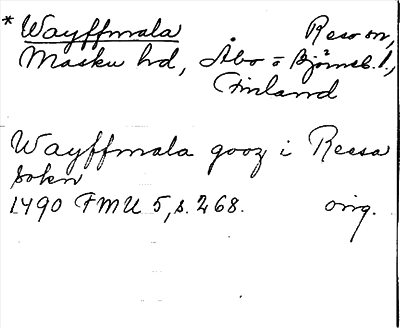 * Wayffmala Reso sn,
Masku hd, Åbo o Björneb. l.,
Finland
Wayffmala gooz i Reesa
sokn
1490 FMU 5, s. 268. orig.